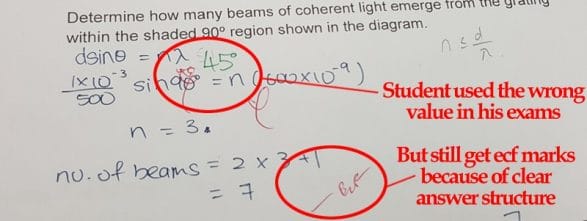 Determine how many beams of coherent light emerge from the grating
within the shaded 90° region shown in the diagram.
dsinθ = nλ
45°
n ≤ d/λ
1×10⁻³/500 sin 90° = n (600×10⁻⁹)
Student used the wrong
value in his exams
n = 3.
But still get ecf marks
because of clear
answer structure
no. of beams = 2 × 3 + 1
= 7
ecf